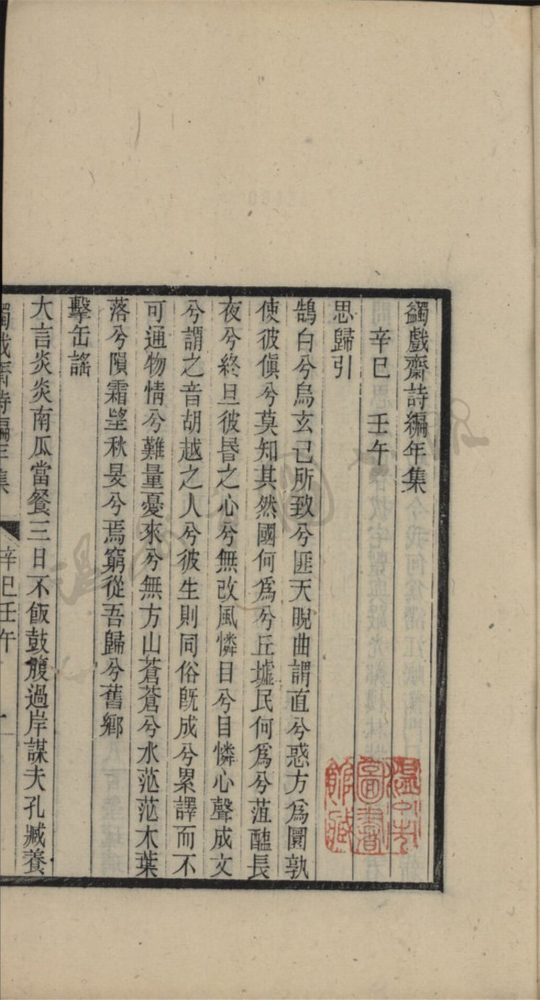 蠲戲齋詩編年集
辛巳 壬午
思歸引
鵠白兮烏玄己所致兮匪天睨曲謂直兮惑方為圜孰
使彼傎兮莫知其然國何為兮丘墟民何為兮菹醢長
夜兮終旦彼昬之心兮無改風憐目兮目憐心聲成文
兮謂之音胡越之人兮彼生則同俗旣成兮累譯而不
可通物情兮難量憂來兮無方山蒼蒼兮水茫茫木葉
落兮隕霜望秋旻兮焉窮從吾歸兮舊鄉
擊缶謠
大言炎炎南瓜當餐三日不飯鼓腹過岸謀夫孔臧養
蠲戲齋詩編年集 辛巳壬午 一
溫州市
圖書
館藏